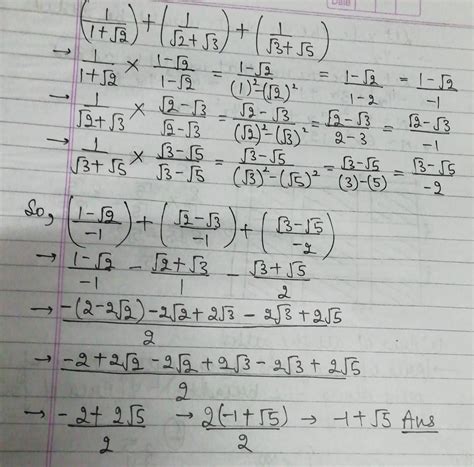 Date
(1/(1+√2)) + (1/(√2+√3)) + (1/(√3+√5))
→ 1/(1+√2) × (1-√2)/(1-√2) = (1-√2)/((1)²-(√2)²) = (1-√2)/(1-2) = (1-√2)/-1
→ 1/(√2+√3) × (√2-√3)/(√2-√3) = (√2-√3)/((√2)²-(√3)²) = (√2-√3)/(2-3) = (√2-√3)/-1
→ 1/(√3+√5) × (√3-√5)/(√3-√5) = (√3-√5)/((√3)²-(√5)²) = (√3-√5)/((3)-(5)) = (√3-√5)/-2
So, ((1-√2)/-1) + ((√2-√3)/-1) + ((√3-√5)/-2)
→ (1-√2)/-1 - (√2+√3)/1 - (√3+√5)/2
→ (-(2-2√2)-2√2+2√3-2√3+2√5)/2
→ (-2+2√2-2√2+2√3-2√3+2√5)/2
→ (-2+2√5)/2 → 2(-1+√5)/2 → -1+√5 Ans